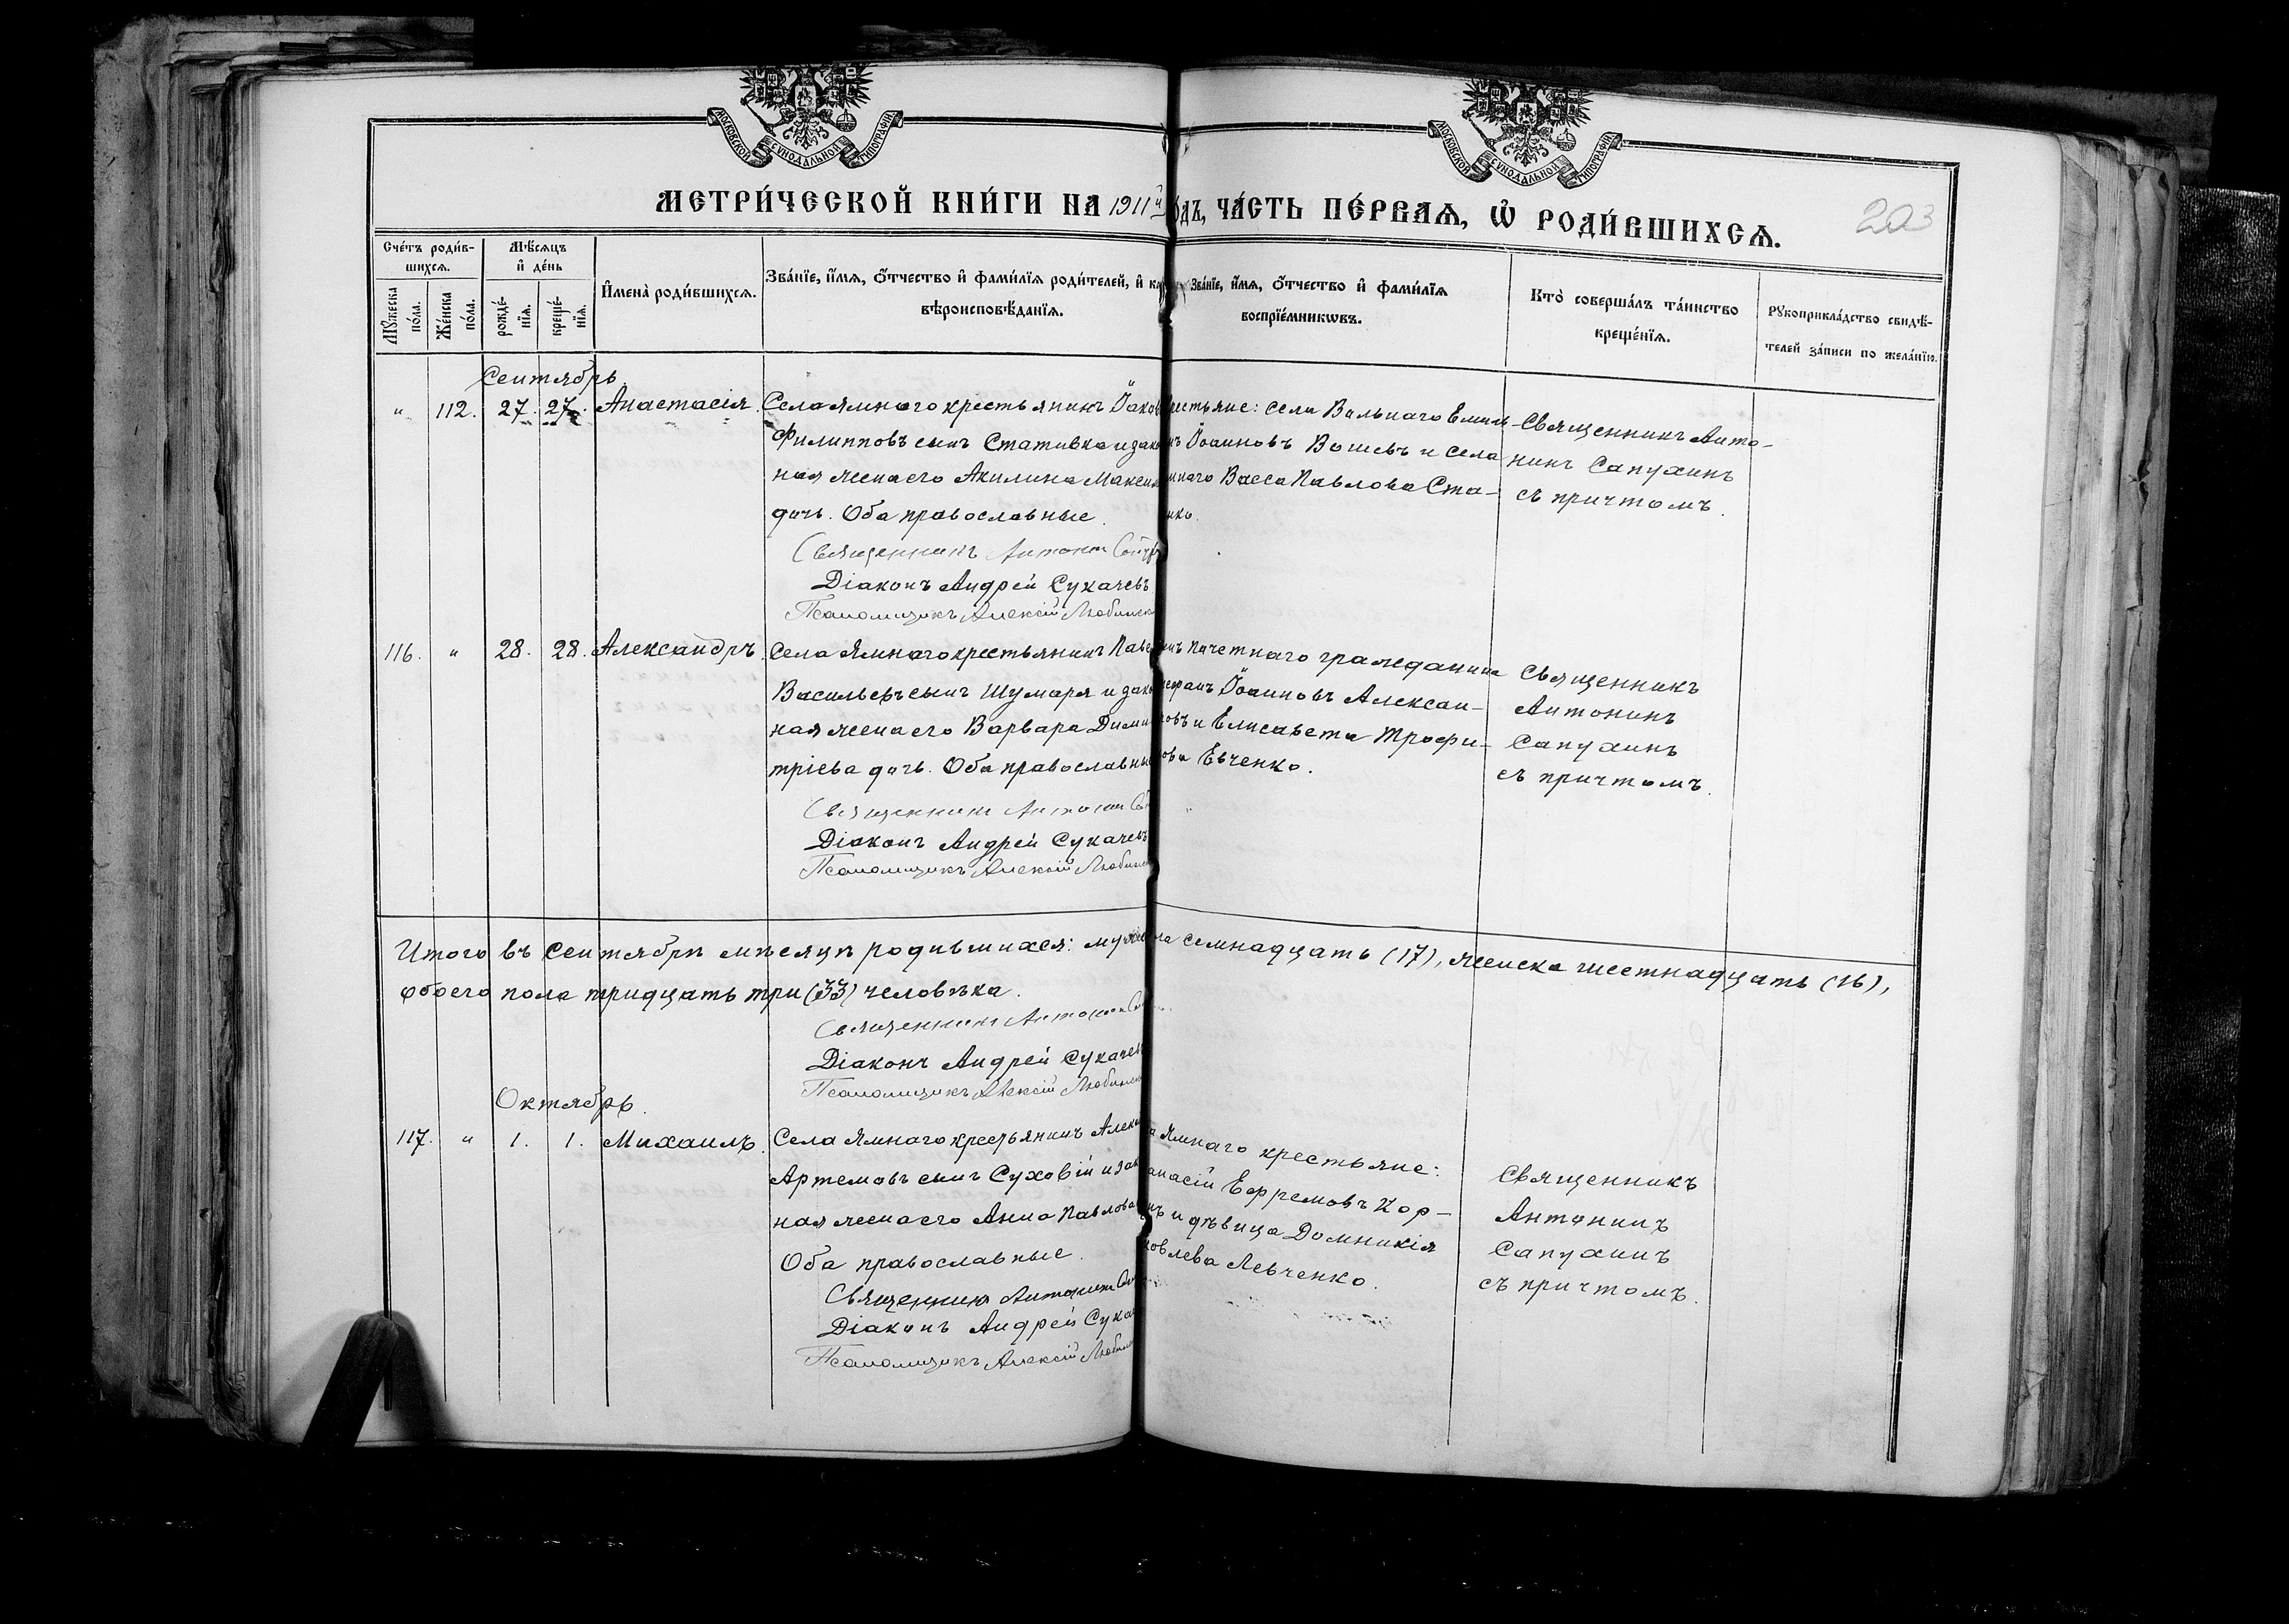 МОСКОВСКОЙ СѴНОДАЛЬНОЙ ТИПОГРАФІИ
МОСКОВСКОЙ СѴНОДАЛЬНОЙ ТИПОГРАФІИ
МЕТРИ́ЧЕСКОЙ КНИ́ГИ НА 1911й ОДЪ, ЧА́СТЬ ПЕ́РВАѦ, Ѡ҆ РОДИ́ВШИХСѦ.
203
Сче́тъ роди́в-
шихсѧ.
Мꙋжеска по́ла.
Же́нска по́ла.
Мѣ́сѧцъ
и҆ де́нь
рожде́-
нїѧ.
креще́-
нїѧ.
И҆мена̀ роди́вшихсѧ.
Зва́нїе, и҆́мѧ, ѻ҆́тчество и҆ фами́лїѧ роди́телей, и҆
вѣроисповѣ́данїѧ.
Зва́нїе, и҆́мѧ, ѻ҆́тчество и҆ фами́лїѧ
воспрїе́мникѡвъ.
Кто̀ соверша́лъ та́инство
креще́нїѧ.
Рꙋкоприкла́дство свидѣ́-
телей за́писи по жела́нїю.
Сентябрь.
" 112. 27. 27. Анастасія.
Села Ямнаго крестьянинъ Іаков
Филипповъ сынъ Стативка и зако
ная жена его Акилина Максим
дочь. Оба православные.
Священникъ Антонин
Діаконъ Андрей Сукачевъ
Псаломщикъ Алексій Любинск
рестьяне: села Вольнаго Емил-
нъ Іоанновъ Вошевъ и села
мнаго Васса Павлова Ста-
ико.
Священникъ Анто-
нинъ Сапухинъ
съ причтомъ.
116. " 28. 28. Александръ.
Села Ямнаго крестьянинъ Паве
Васильевъ сынъ Шумаря и зако
ная жена его Варвара Дими
тріева дочь. Оба православны
Священникъ Антонин
Діаконъ Андрей Сукачевъ
Псаломщикъ Алексій Любинск
нъ почетнаго гражданина
Іоанновъ Алексан-
ровъ и Елисавета Трофи-
ова Евченко.
Священникъ
Антонинъ
Сапухинъ
съ причтомъ.
Итого въ Сентябрѣ мѣсяцѣ родившихся: мужеска семнадцать (17), женска шестнадцать (16),
обоего пола тридцать три (33) человѣка.
Священникъ Антонин
Діаконъ Андрей Сукачев
Псаломщикъ Алексій Любинск
Октябрь.
117. " 1. 1. Михаилъ.
Села Ямнаго крестьянинъ Алек
Артемовъ сынъ Суховій и зак
ная жена его Анна Павлова
Оба православные.
Священникъ Антонинъ
Діаконъ Андрей Сука
Псаломщикъ Алексій Любин
а Ямнаго крестьяне:
анасій Ефремовъ Кор-
нъ и дѣвица Домникія
ковлева Левченко.
Священникъ
Антонинъ
Сапухинъ
съ причтомъ.